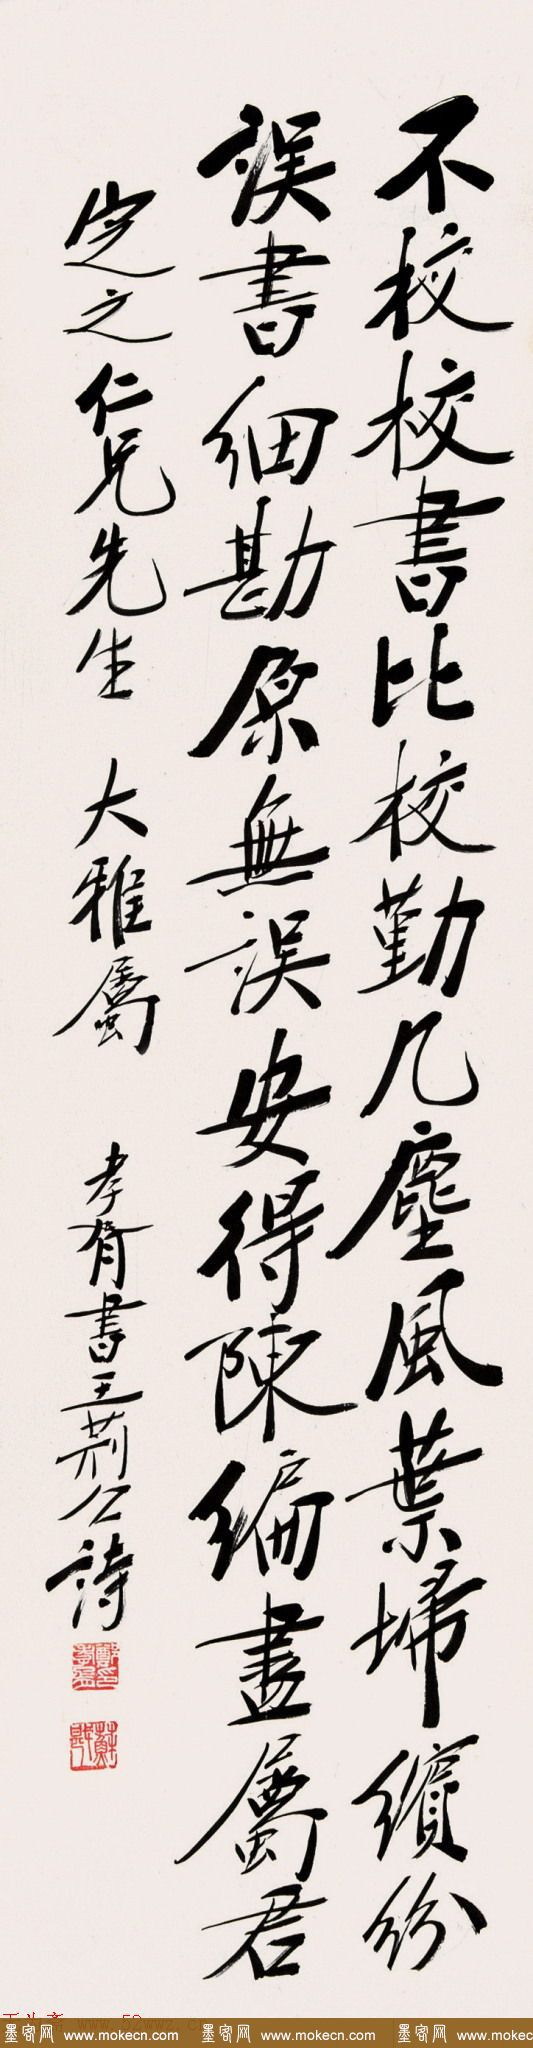 不校校書比校勤几塵風葉埽繽紛
誤書細勘原無誤安得陳編盡屬君
定之仁兄先生 大雅屬 孝胥書王荊公詩
墨客网 www.mokecn.com 墨客网 www.mokecn.com 墨客网 www.mokecn.com